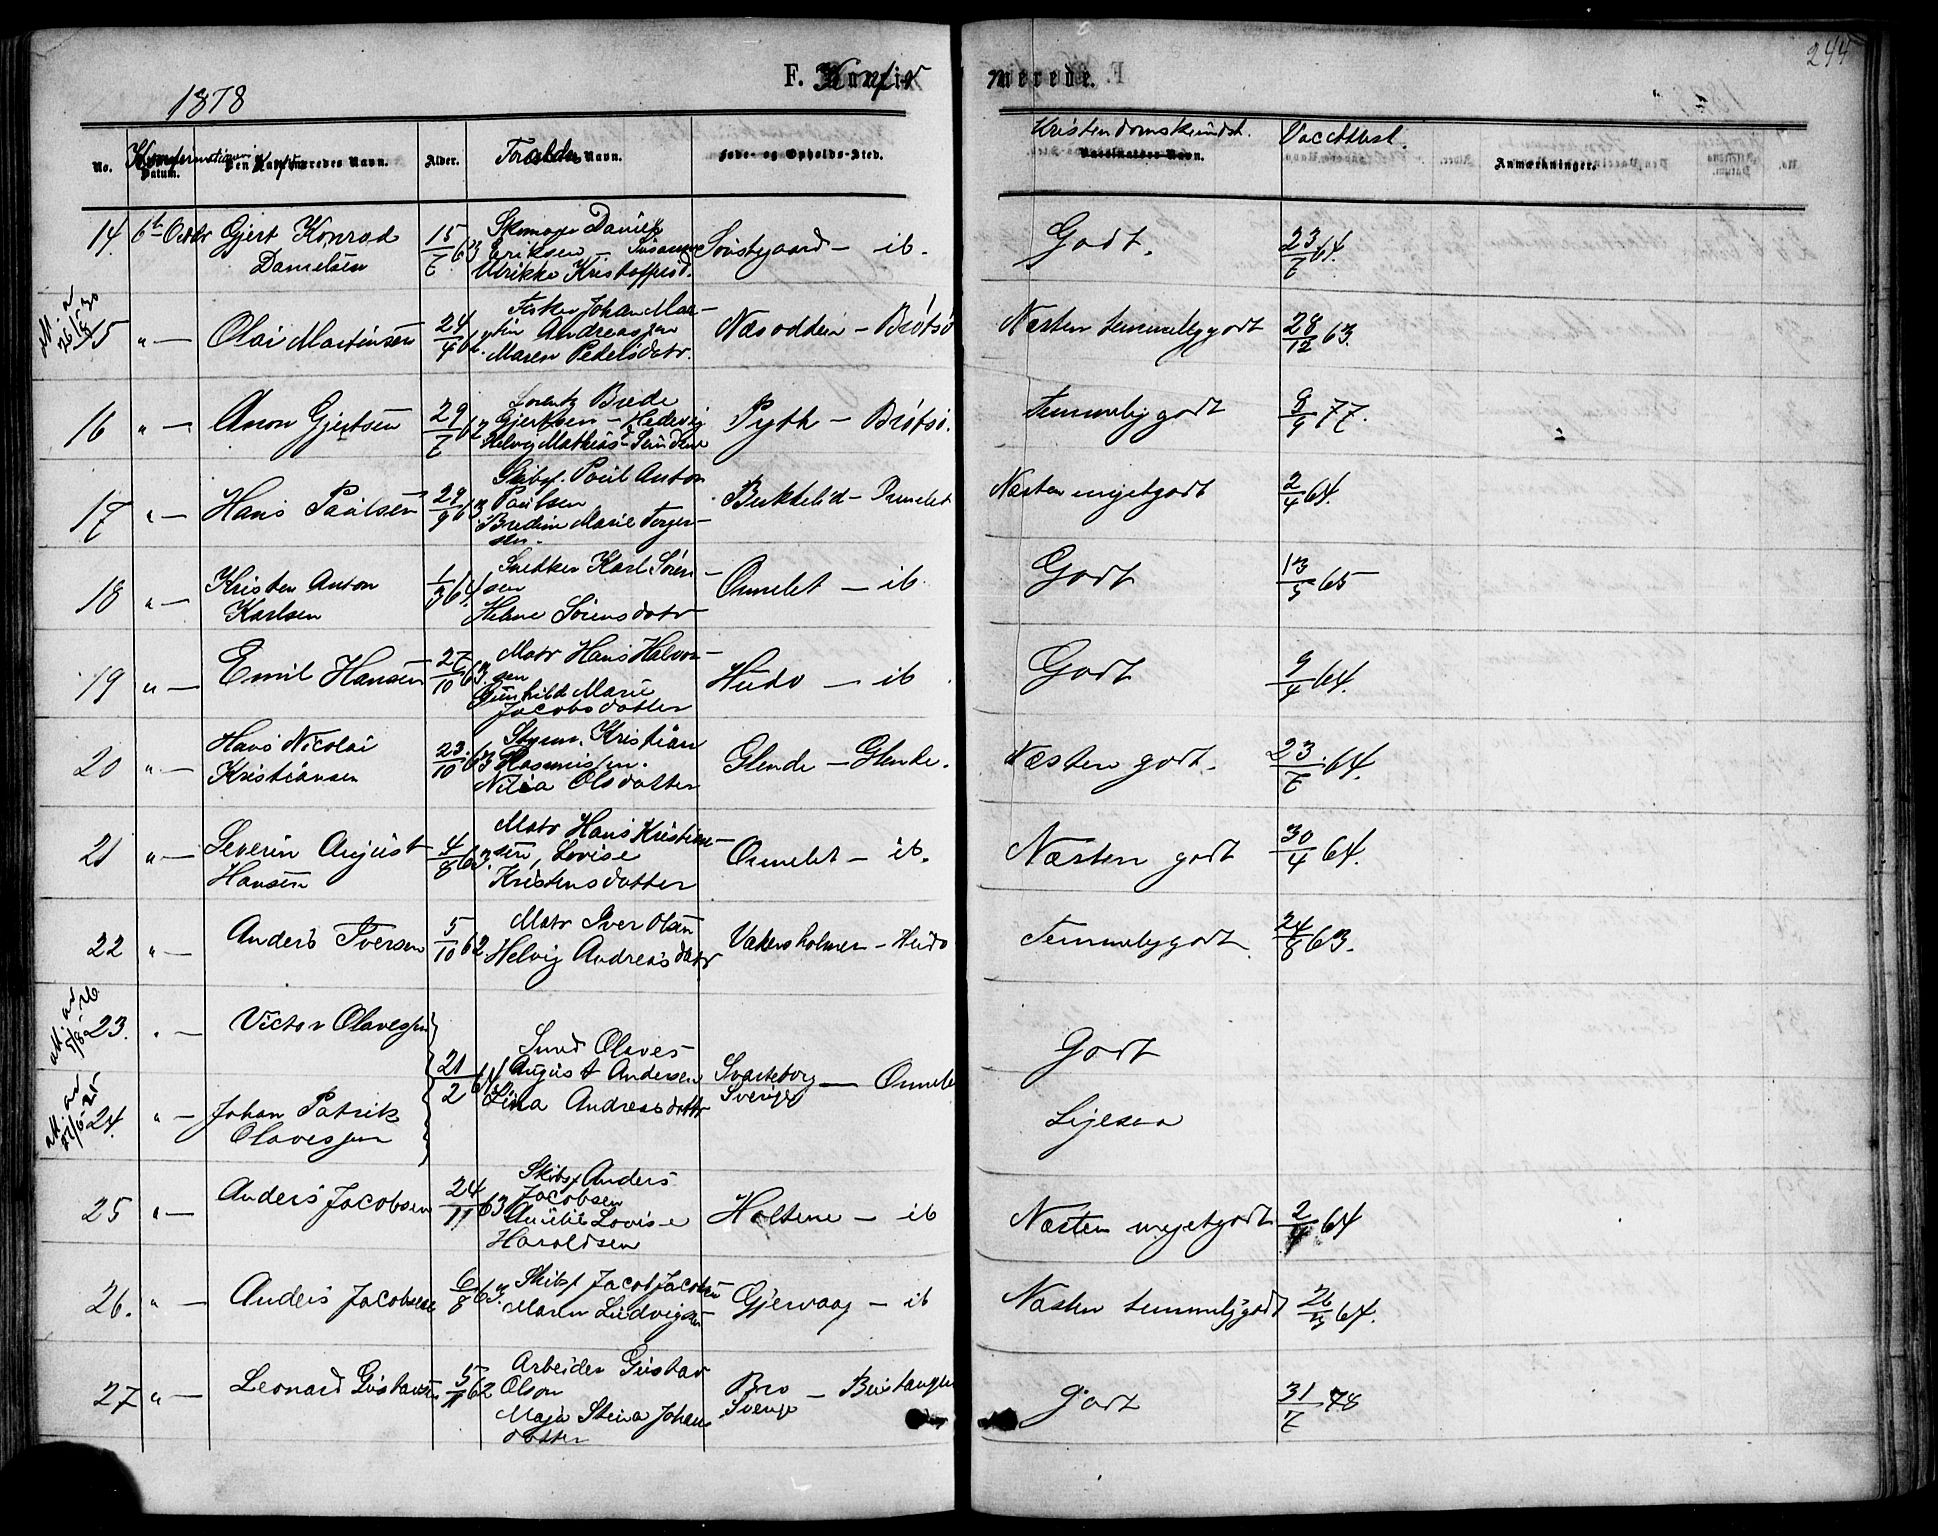 244
1878
F. Konfir merede.
No.
Konfirmations Datum.
Den Konfirmeredes Navn.
Alder.
Forældre Navn.
Føde- og Opholds-Sted.
Kristendomskundsk.
Vaccinatt.
Anmærkninger.
14. 6te Octbr Gjert Konrad Danielsen 15/7 63 Skomager Daniel Eriksen – Susanne Ulrikke Kristoffersd. Søistegaard – ib. Godt. 23/7 64.
att. 26/5 30
15 " — Olai Martinsen 24/4 62. Fisker Johan Martin Andreassen Maren Pedersdatr. Næsodden – Brøtsø Næsten temmelig godt 28/12 63.
16 " — Anon Gjertsen 29/7 62 Lorentz Brede Gjertsen – Hedevig Helvig Mathias Pyth – Brøtsø. Temmelig godt 77.
17 " — Hans Paulsen 29/9 63 Skibsf. Poul Anton Paulsen Bredine Marie Torgersen. Bukkelid – Ormelet Næsten meget godt 2/4 64.
18 " — Kristen Anton Karlsen 1/3 64. Snedker Karl Sørensen Helene Sørensdatr Ormelet — ib. Godt 13/5 65
19 " — Emil Hansen 27/10 63. Matr Hans Halvorsen Gunhild Marie Jacobsdatter Hudø — ib. Godt 9/4 64.
20 " — Hans Nicolai Kristiansen 23/10 63 Styrm. Kristian Rasmussen. Nilia Olsdatter Glende – Glende. Næsten godt. 23/7 64.
21 " — Severin August Hansen 4/8 63. Matr Hans Kristiansen, Lovise Kristensdatter Ormelet – ib. Næsten godt 30/4 64.
22 " — Anders Iversen 5/10 62. Matr Iver Olsen Helvig Andreasdatr Vakersholmen – Hudø Temmelig godt 24/8 63.
att. av 5/8 26
23. " — Victor Olavessen
21/2 64 Smed Olaves August Andersen Lina Andreasdattr Svarteborg Sverige — Ormelet Godt
att. av
24. " — Johan Patrik Olavessen Ligesaa
25 " — Anders Jacobsen 24/11 63 Skibsf Anders Jacobsen Amelie Lovise Haroldsen Holtene — ib Næsten meget godt 2/4 64
26. " — Anders Jacobsen 6/8 63. Skibsf Jacob Jacobsen Maren Ludvigsen Gjervaag – ib Næsten temmelig godt 64.
27 " — Leonard Gustavsen 62 Arbeider Gustav Olson Maja Stina Johansdatter Bro Sverige – Burstangen Godt 31/7 78